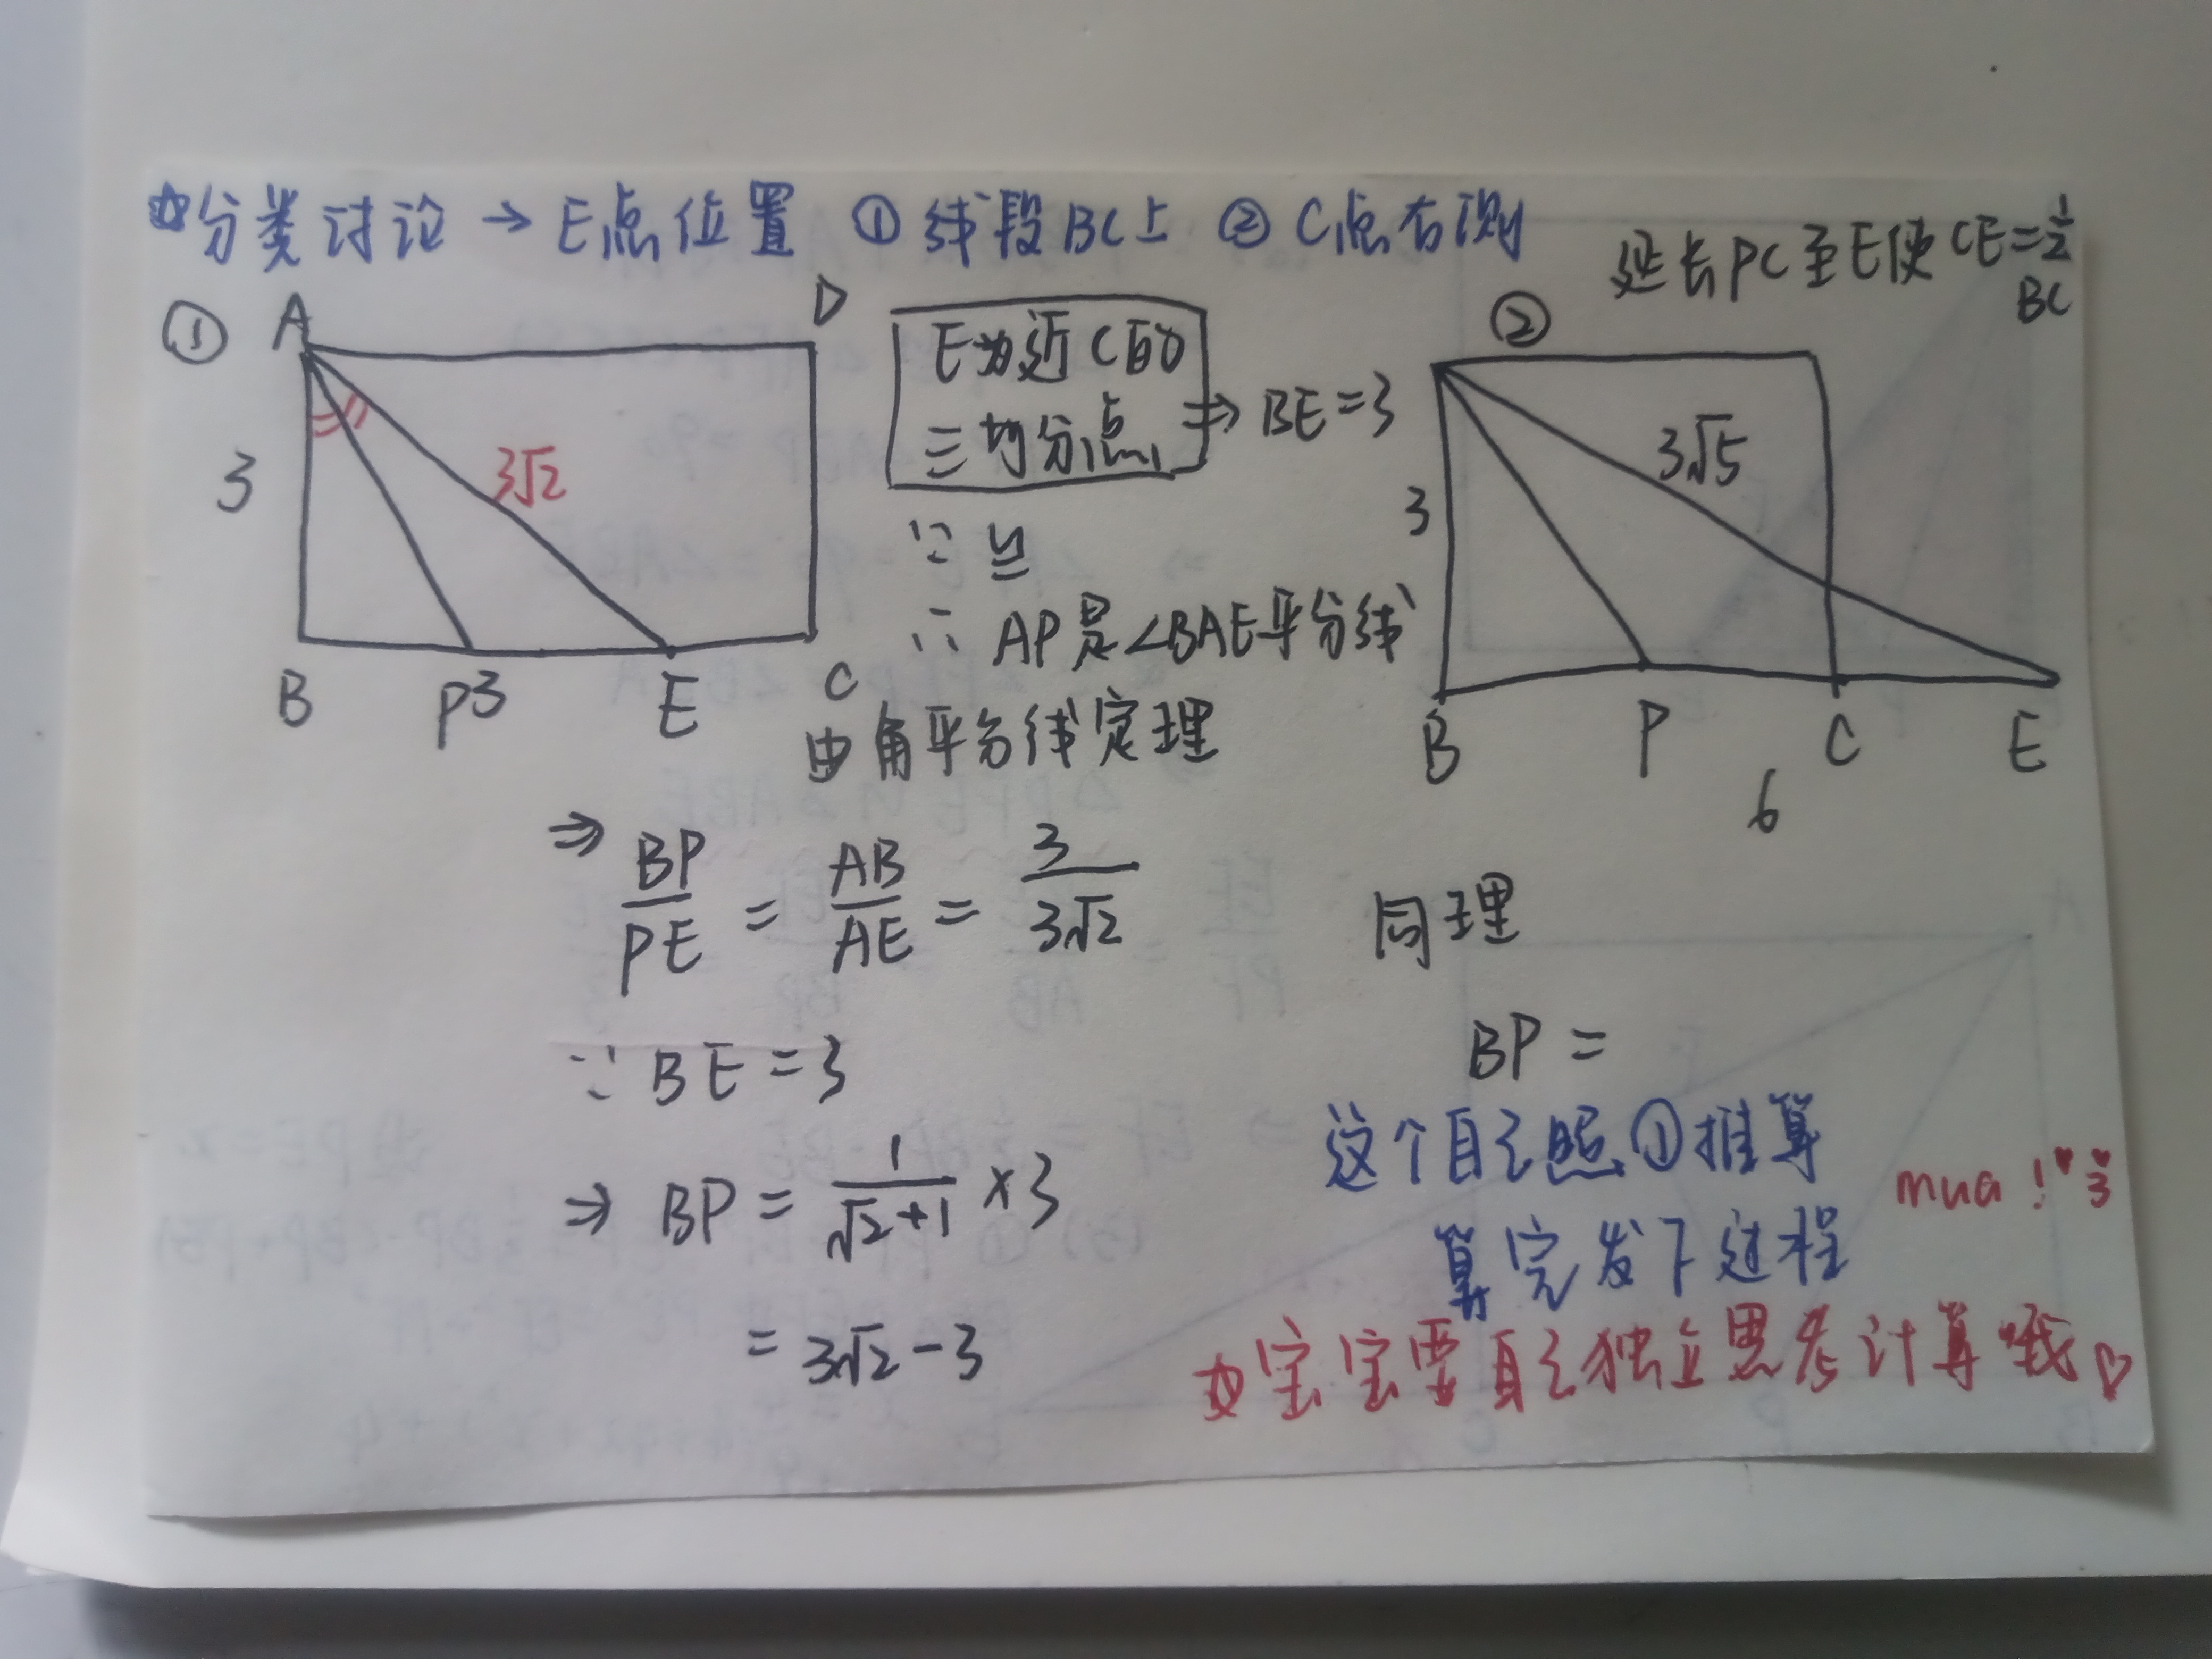 ☆分类讨论 → E点位置 ① 线段BC上 ② C点右测
延长PC至E使CE=½
BC
①
A
D
3
3√2
B
P
3
E
C
E为近C的
三均分点
⇒ BE=3
∵ 
∴ AP是∠BAE平分线
由角平分线定理
⇒ BP/PE = AB/AE = 3/3√2
∵ BE=3
⇒ BP = 1/(√2+1) ×3
= 3√2-3
②
3
3√5
B
P
C
E
6
同理
BP =
这个自己照①推算
算完发下过程
mua!♥3
☆宝宝要自己独立思考计算哦♡